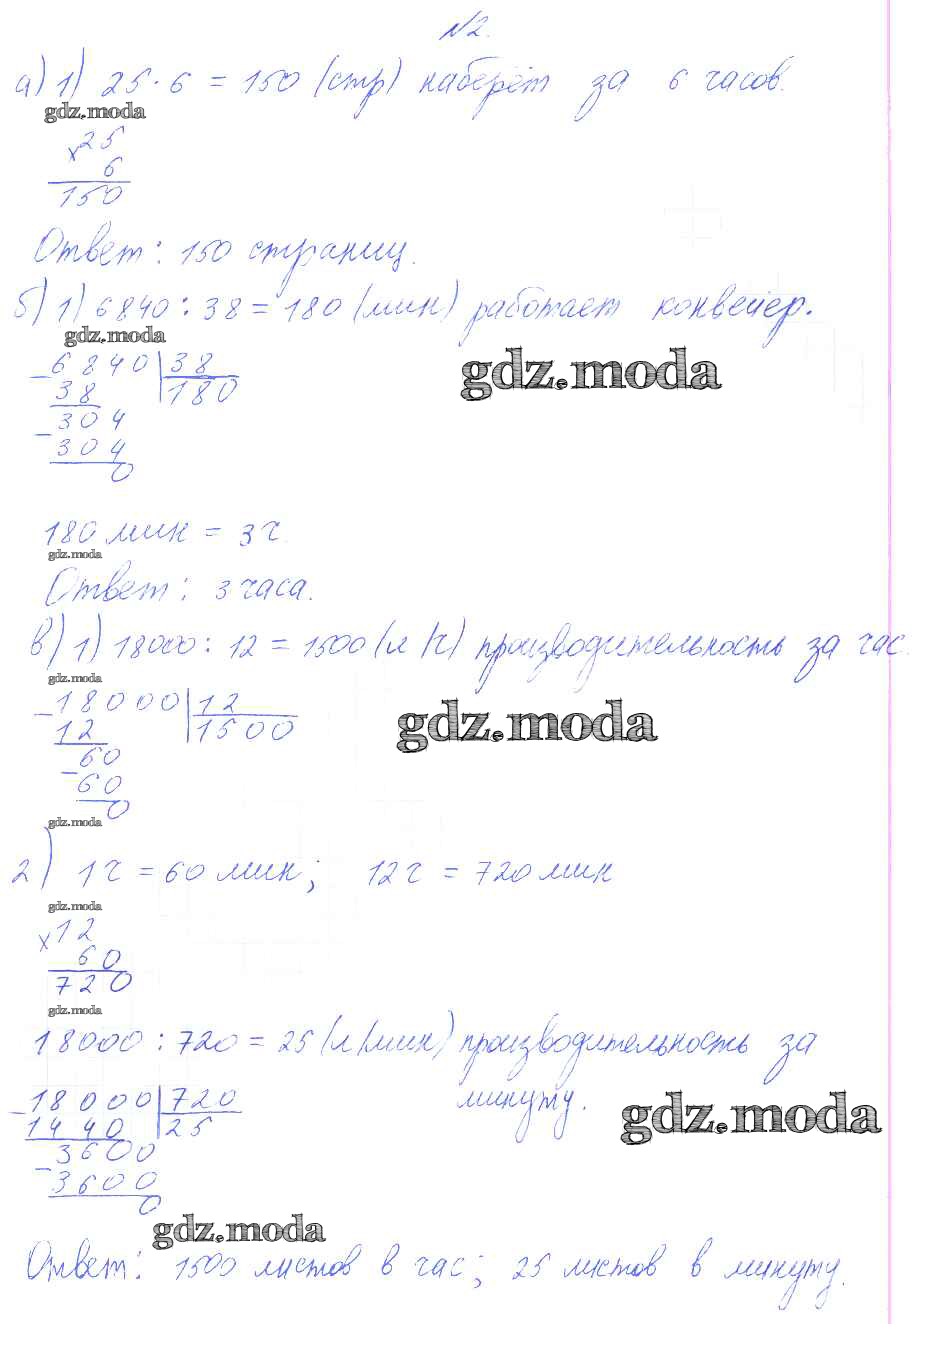 №2.
а) 1) 25 · 6 = 150 (стр) наберёт за 6 часов.
gdz.moda
× 25
6
150
Ответ: 150 страниц.
б) 1) 6840 : 38 = 180 (мин) работает конвейер.
gdz.moda
gdz.moda
– 6840 | 38
38 | 180
– 304
304
0
180 мин = 3 ч.
gdz.moda
Ответ: 3 часа.
в) 1) 18000 : 12 = 1500 (л/ч) производительность за час.
gdz.moda
– 18000 | 12
12 | 1500
gdz.moda
– 60
60
0
gdz.moda
2) 1 ч = 60 мин; 12 ч = 720 мин
gdz.moda
× 12
60
720
gdz.moda
18000 : 720 = 25 (л/мин) производительность за
минуту.
– 18000 | 720
1440 | 25
gdz.moda
– 3600
3600
0
gdz.moda
Ответ: 1500 листов в час; 25 листов в минуту.